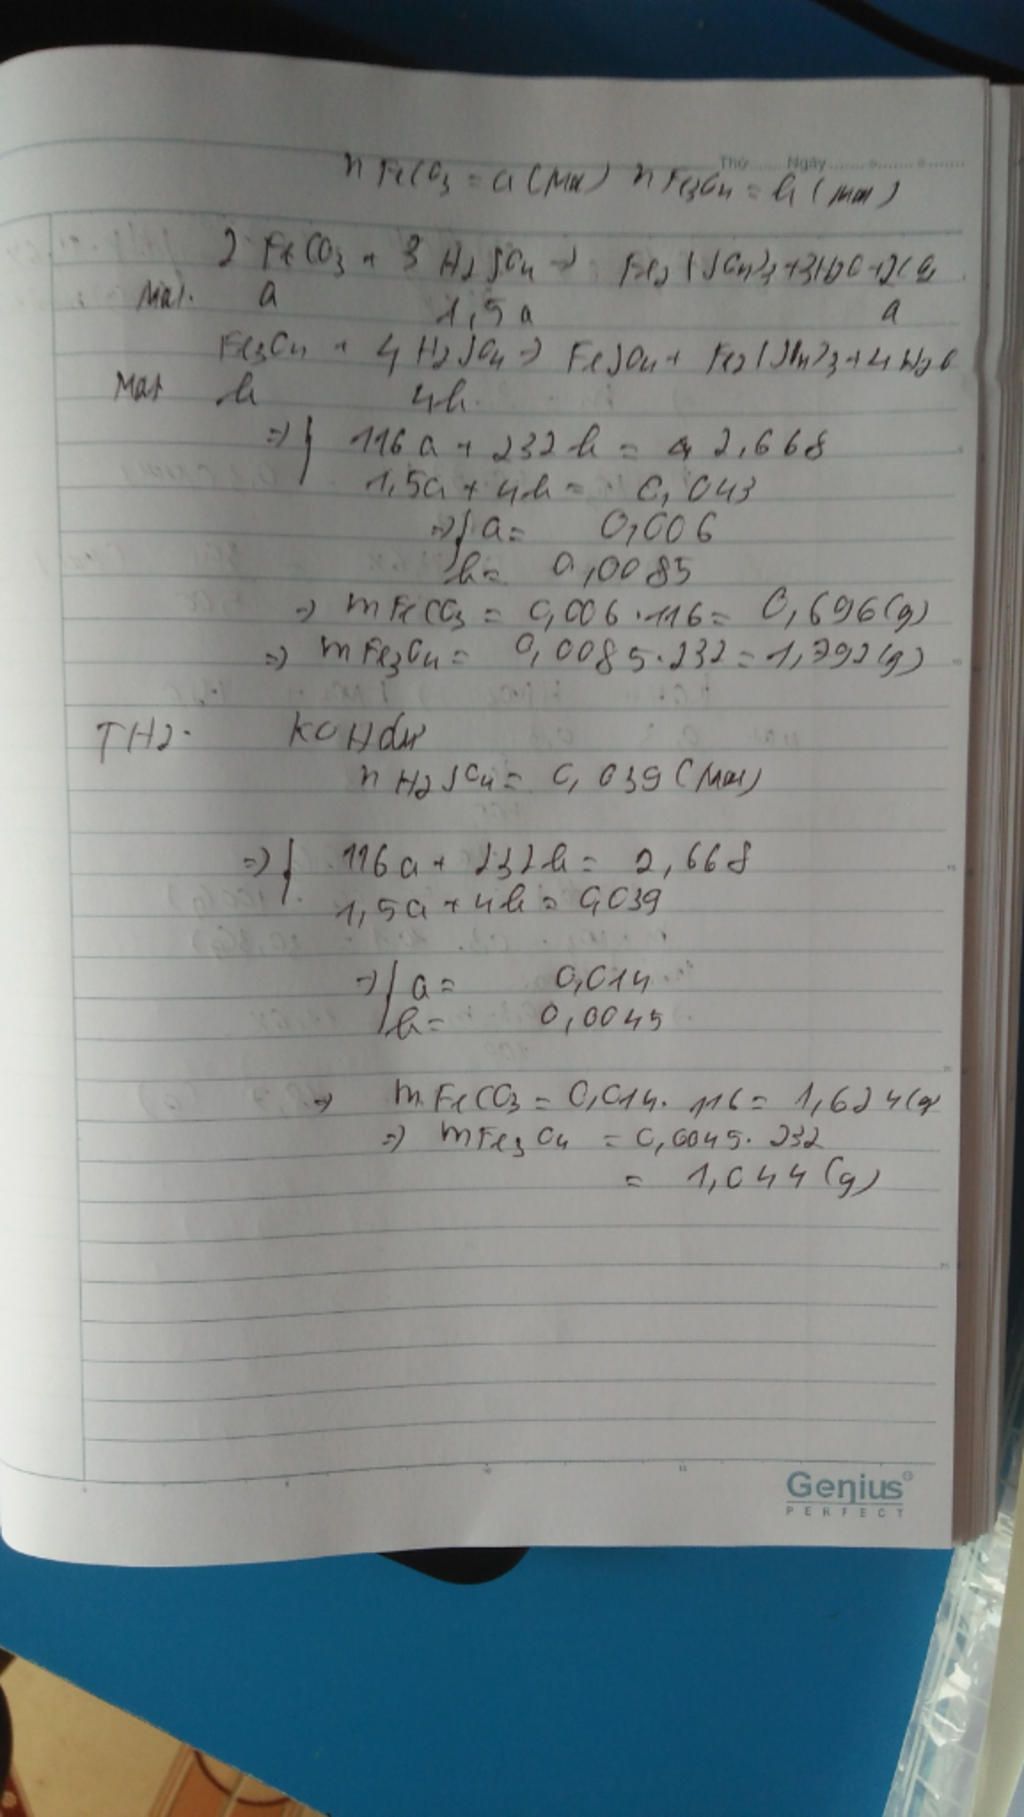 Thứ Ngày
nFeCO3 = a (mol) nFe3O4 = b (mol)
2FeCO3 + 3H2SO4 => Fe2(SO4)3 + 3H2O + 2CO2
Mol. a 1,5a a
Fe3O4 + 4H2SO4 => FeSO4 + Fe2(SO4)3 + 4H2O
Mol b 4b
=> { 116a + 232b = 2,668
1,5a + 4b = 0,043
=> { a = 0,006
b = 0,0085
=> mFeCO3 = 0,006.116 = 0,696(g)
=> mFe3O4 = 0,0085.232 = 1,792(g)
TH2. KOH dư
nH2SO4 = 0,039 (mol)
=> { 116a + 232b = 2,668
1,5a + 4b = 0,039
=> { a = 0,014
b = 0,0045
=> mFeCO3 = 0,014.116 = 1,624(g
=> mFe3O4 = 0,0045.232
= 1,044(g)
Genius
PERFECT